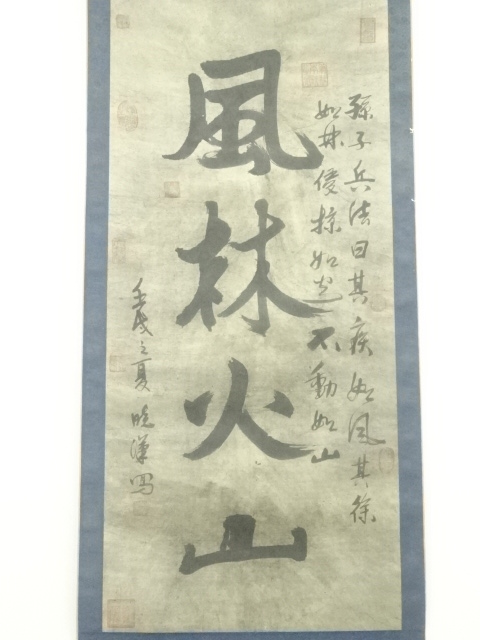 孫子兵法曰其疾如风其徐
如林侵掠如火不動如山
風林火山
壬戌之夏